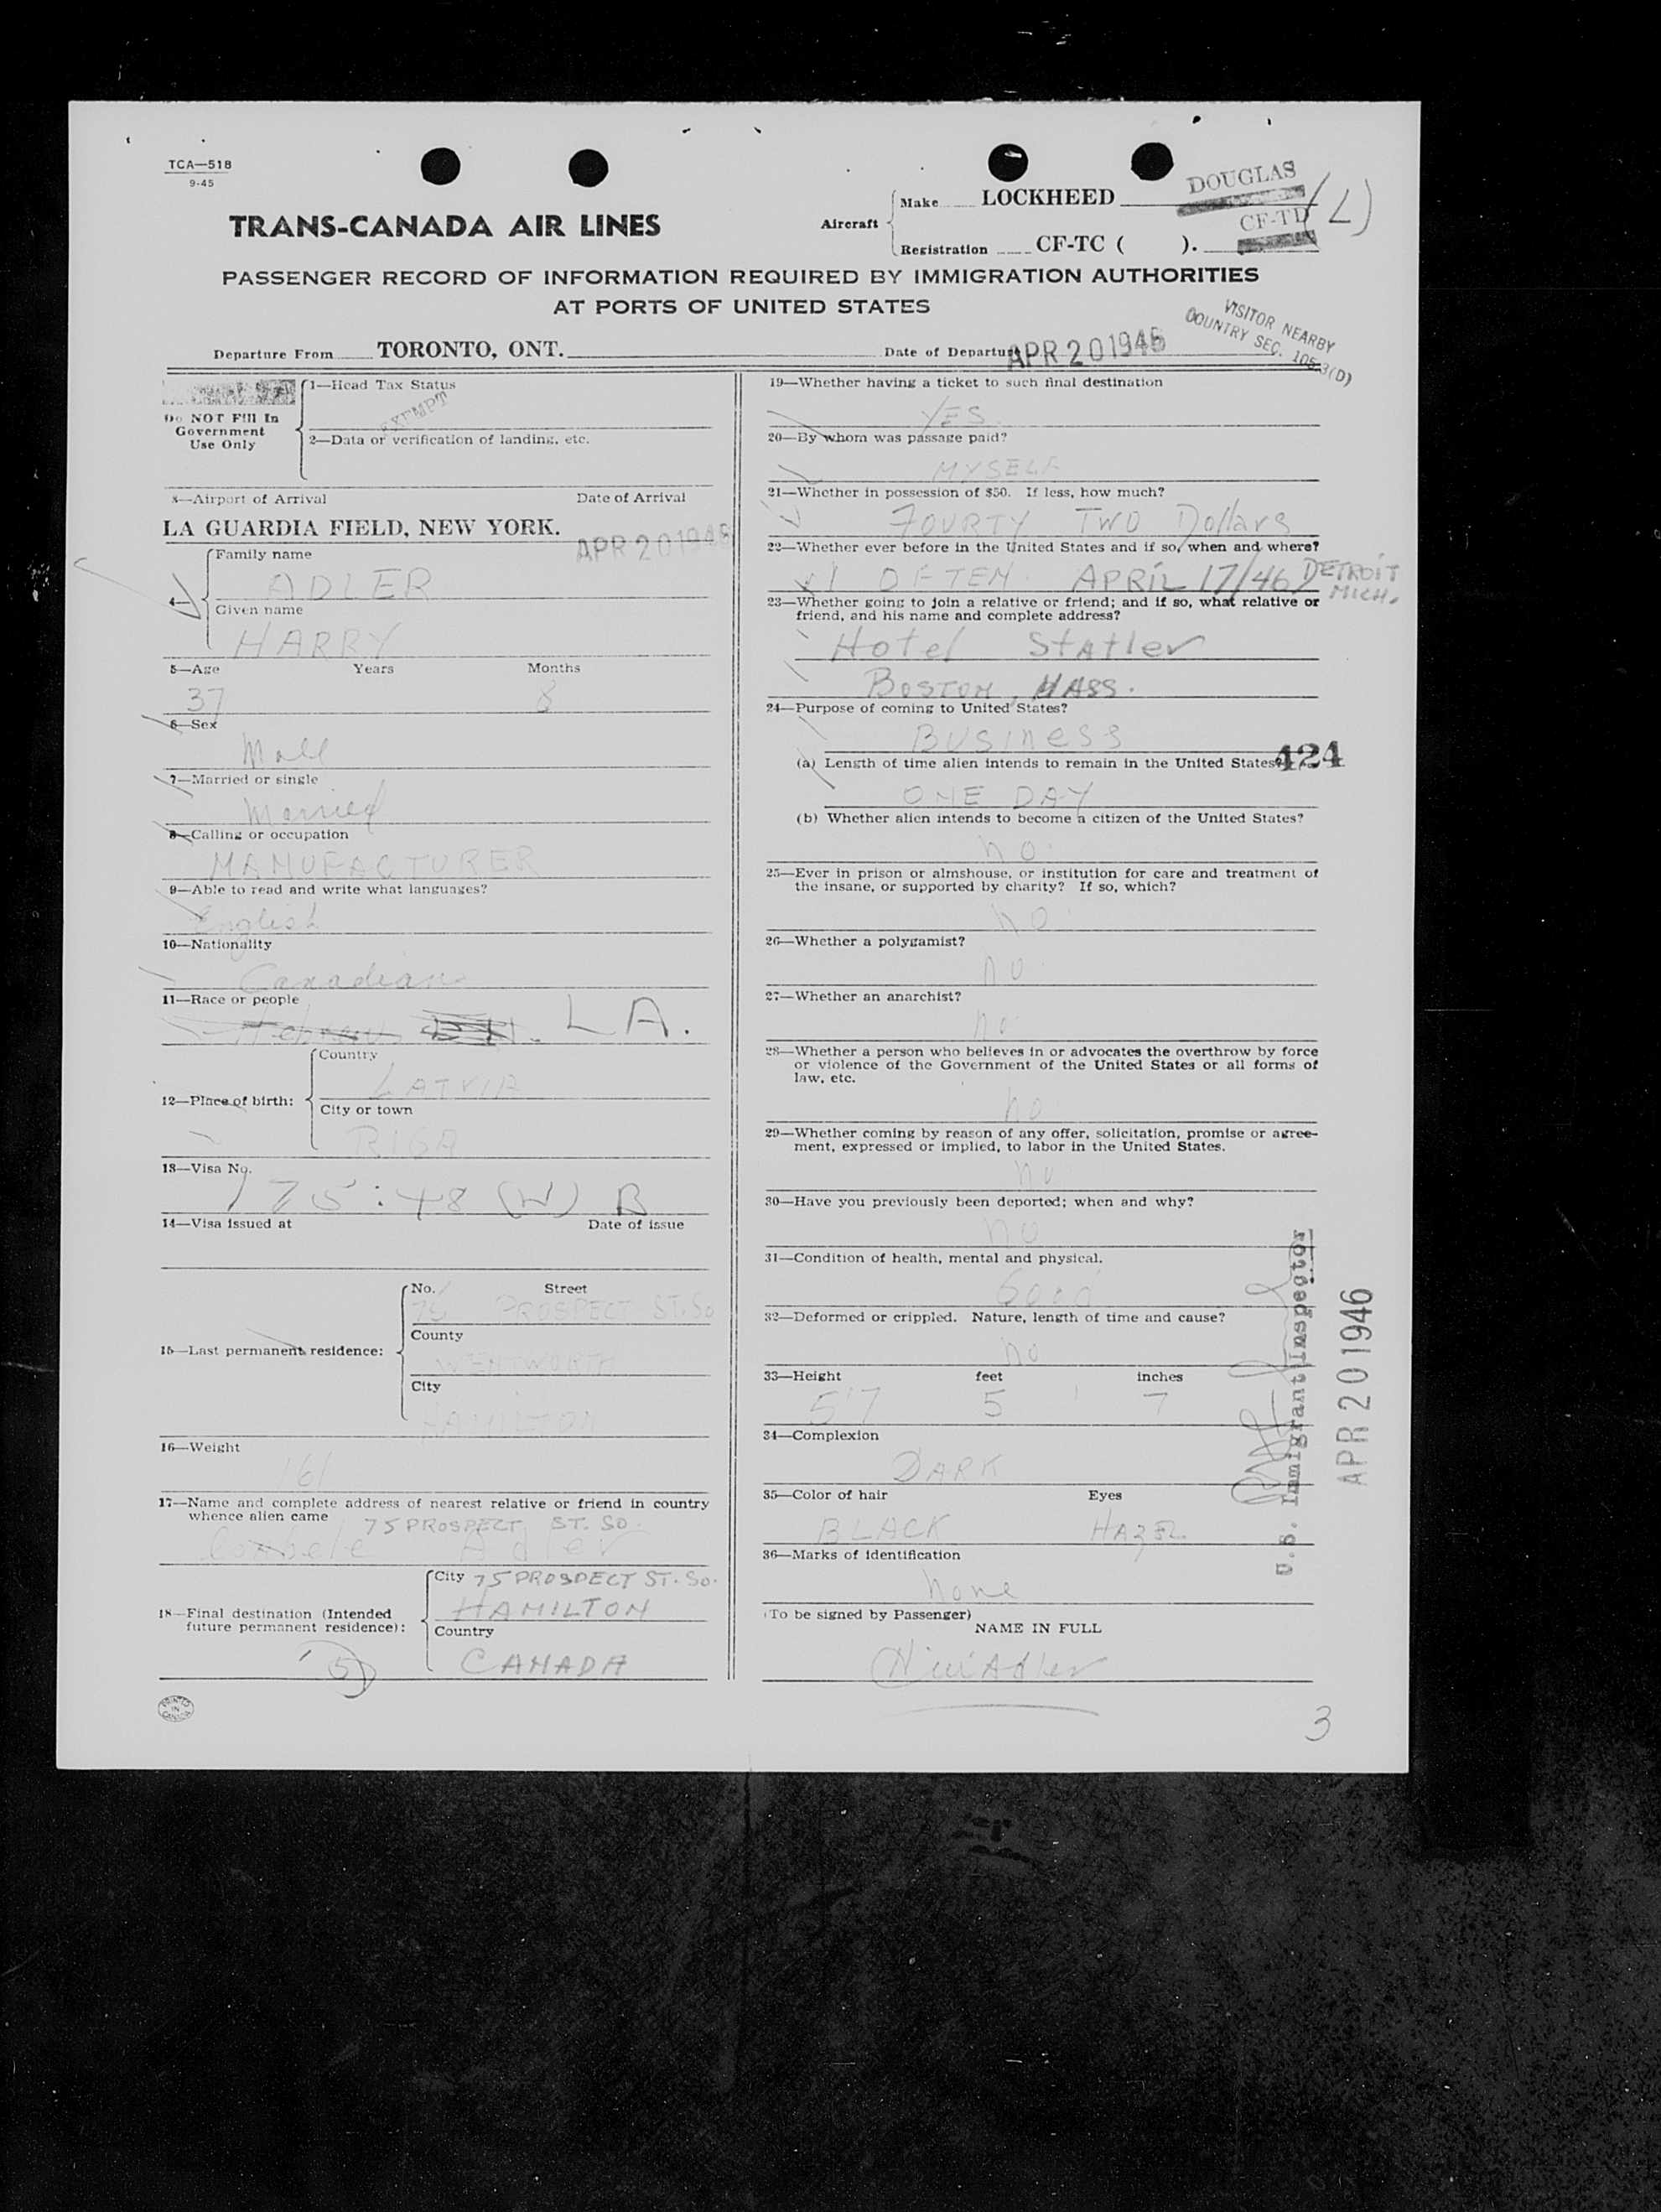 TCA—518
9-45
TRANS-CANADA AIR LINES
Aircraft
Make LOCKHEED
DOUGLAS
Registration CF-TC ( ).
CF-TD (L)
PASSENGER RECORD OF INFORMATION REQUIRED BY IMMIGRATION AUTHORITIES
AT PORTS OF UNITED STATES
VISITOR NEARBY
COUNTRY SEC. 105.3(D)
Departure From TORONTO, ONT.
Date of Departure APR 20 1946
Do NOT Fill In
Government
Use Only
1—Head Tax Status
EXEMPT
2—Data or verification of landing, etc.
3—Airport of Arrival Date of Arrival
LA GUARDIA FIELD, NEW YORK. APR 20 1946
4—
Family name
ADLER
Given name
HARRY
5—Age Years Months
37 8
6—Sex
Male
7—Married or single
Married
8—Calling or occupation
MANUFACTURER
9—Able to read and write what languages?
English
10—Nationality
Canadian
11—Race or people
Hebrew LA.
12—Place of birth:
Country
LATVIA
City or town
RIGA
13—Visa No.
175:48 (W) B
14—Visa issued at Date of issue
15—Last permanent residence:
No. Street
75 PROSPECT ST. So
County
WENTWORTH
City
HAMILTON
16—Weight
161
17—Name and complete address of nearest relative or friend in country
whence alien came 75 PROSPECT ST. SO.
Adler
18—Final destination (Intended
future permanent residence):
City 75 PROSPECT ST. So.
HAMILTON
Country
CANADA
5
PRINTED
IN
CANADA
19—Whether having a ticket to such final destination
YES
20—By whom was passage paid?
MYSELF
21—Whether in possession of $50. If less, how much?
FOURTY TWO Dollars
22—Whether ever before in the United States and if so, when and where?
OFTEN. APRIL 17/46 DETROIT
MICH.
23—Whether going to join a relative or friend; and if so, what relative or
friend, and his name and complete address?
Hotel Statler
BOSTON, MASS.
24—Purpose of coming to United States?
BUSINESS
(a) Length of time alien intends to remain in the United States? 424
ONE DAY
(b) Whether alien intends to become a citizen of the United States?
no.
25—Ever in prison or almshouse, or institution for care and treatment of
the insane, or supported by charity? If so, which?
no
26—Whether a polygamist?
no.
27—Whether an anarchist?
no
28—Whether a person who believes in or advocates the overthrow by force
or violence of the Government of the United States or all forms of
law, etc.
no
29—Whether coming by reason of any offer, solicitation, promise or agree-
ment, expressed or implied, to labor in the United States.
no
30—Have you previously been deported; when and why?
no
31—Condition of health, mental and physical.
Good
32—Deformed or crippled. Nature, length of time and cause?
no
33—Height feet inches
5'7 5 ' 7
34—Complexion
DARK
35—Color of hair Eyes
BLACK HAZEL
36—Marks of identification
none
(To be signed by Passenger)
NAME IN FULL
Adler
U.S. Immigrant Inspector
APR 20 1946
3